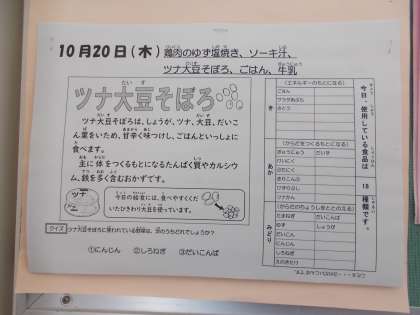 10月20日(木) 鶏肉のゆず塩焼き、ソーキ汁、
ツナ大豆そぼろ、ごはん、牛乳
ツナ大豆そぼろ
ツナ大豆そぼろは、しょうが、ツナ、大豆、だいこ
ん葉をいため、甘辛く味つけし、ごはんといっしょに
食べます。
主に体をつくるもとになるたんぱく質やカルシウ
ム、鉄を多く含むおかずです。
ツナ
今日の給食には、食べやすくだ
いたひきわり大豆を使っています。
クイズ ツナ大豆そぼろに使われている野菜は、次のうちどれでしょうか?
①にんじん ②しろねぎ ③だいこんば
今日、使用している食品は 18 種類です。
き
(エネルギーのもとになる)
ごはん
あか
(からだをつくるもとになる)
ぎゅうにゅう だいず
とりにく
ぶたにく
ツナかん
みどり
(からだのちょうしをととのえる)
たまねぎ だいこんば
ゆず しょうが
だいこん
にんじん
しろねぎ
えのきたけ